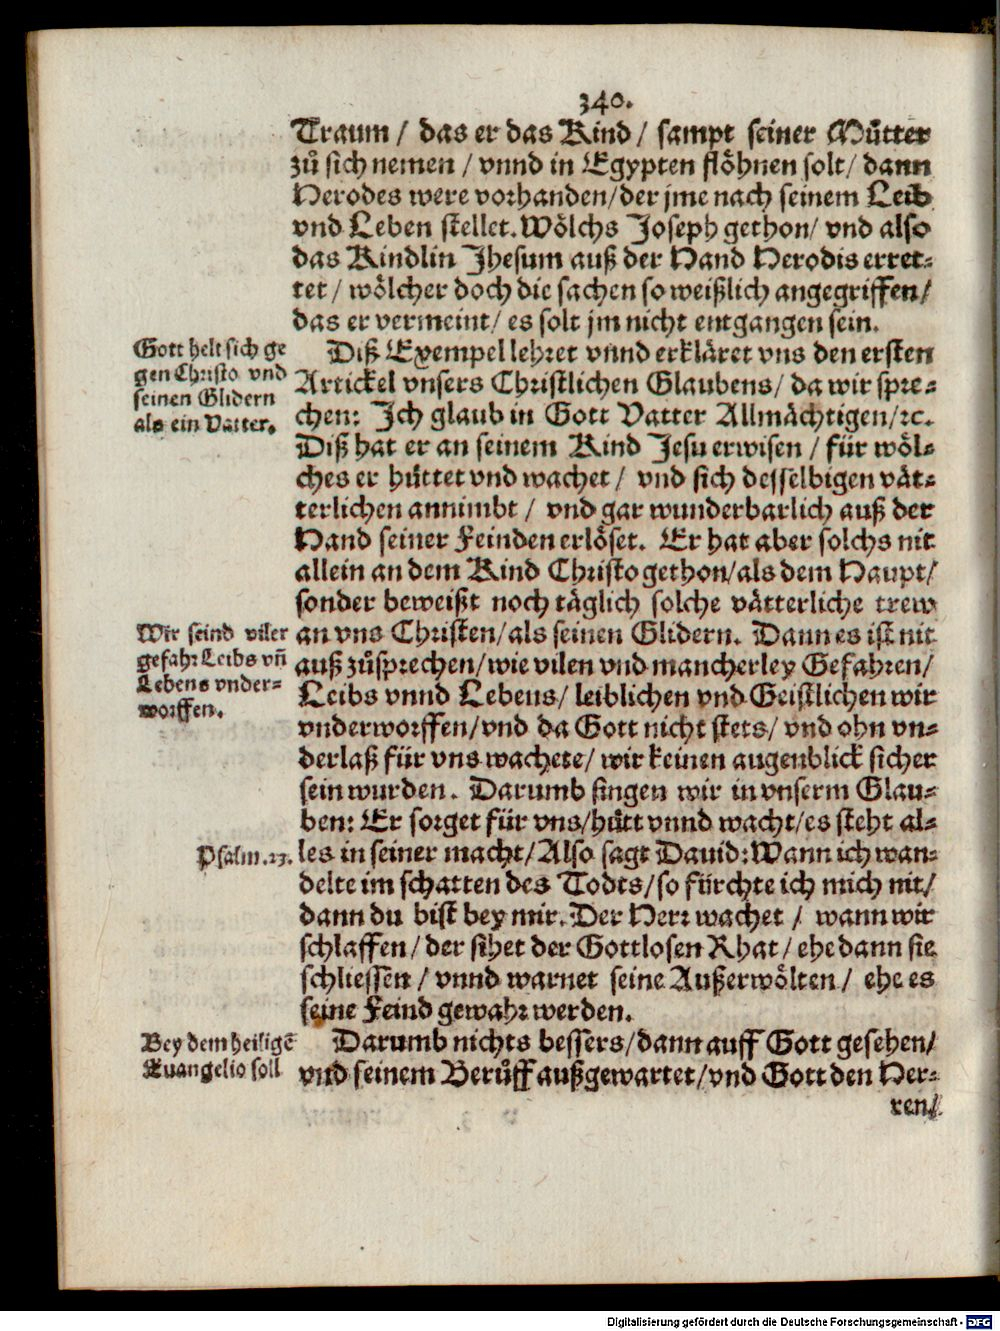 340.
Traum / das er das Kind / sampt seiner Můtter
zů sich nemen / vnnd in Egypten flöhnen solt / dann
Herodes were vorhanden / der jme nach seinem Leib
vnd Leben stellet. Wölchs Joseph gethon / vnd also
das Kindlin Jhesum auß der Hand Herodis erret-
tet / wölcher doch die sachen so weißlich angegriffen /
das er vermeint / es solt jm nicht entgangen sein.
Gott helt sich ge
gen Christo vnd
seinen Glidern
als ein Vatter.
Diß Exempel lehret vnnd erkläret vns den ersten
Artickel vnsers Christlichen Glaubens / da wir spre-
chen: Ich glaub in Gott Vatter Allmächtigen / ꝛc.
Diß hat er an seinem Kind Jesu erwisen / für wöl-
ches er hüttet vnd wachet / vnd sich desselbigen vät-
terlichen annimbt / vnd gar wunderbarlich auß der
Hand seiner Feinden erlöset. Er hat aber solchs nit
allein an dem Kind Christo gethon / als dem Haupt /
sonder beweißt noch täglich solche vätterliche trew
Wir seind viler
gefahr Leibs vñ
Lebens vnder-
worffen.
an vns Christen / als seinen Glidern. Dann es ist nit
auß zůsprechen / wie vilen vnd mancherley Gefahren /
Leibs vnnd Lebens / leiblichen vnd Geistlichen wir
vnderworffen / vnd da Gott nicht stets / vnd ohn vn-
derlaß für vns wachete / wir keinen augenblick sicher
sein wurden. Darumb singen wir in vnserm Glau-
ben: Er sorget für vns / hütt vnnd wacht / es steht al-
Psalm. 23.
les in seiner macht / Also sagt Dauid: Wann ich wan-
delte im schatten des Todts / so fürchte ich mich nit /
dann du bist bey mir. Der Herr wachet / wann wir
schlaffen / der sihet der Gottlosen Rhat / ehe dann sie
schliessen / vnnd warnet seine Außerwölten / ehe es
seine Feind gewahr werden.
Bey dem heiligē
Euangelio soll
Darumb nichts bessers / dann auff Gott gesehen /
vnd seinem Berůff außgewartet / vnd Gott den Her-
ren /
Digitalisierung gefördert durch die Deutsche Forschungsgemeinschaft - DFG